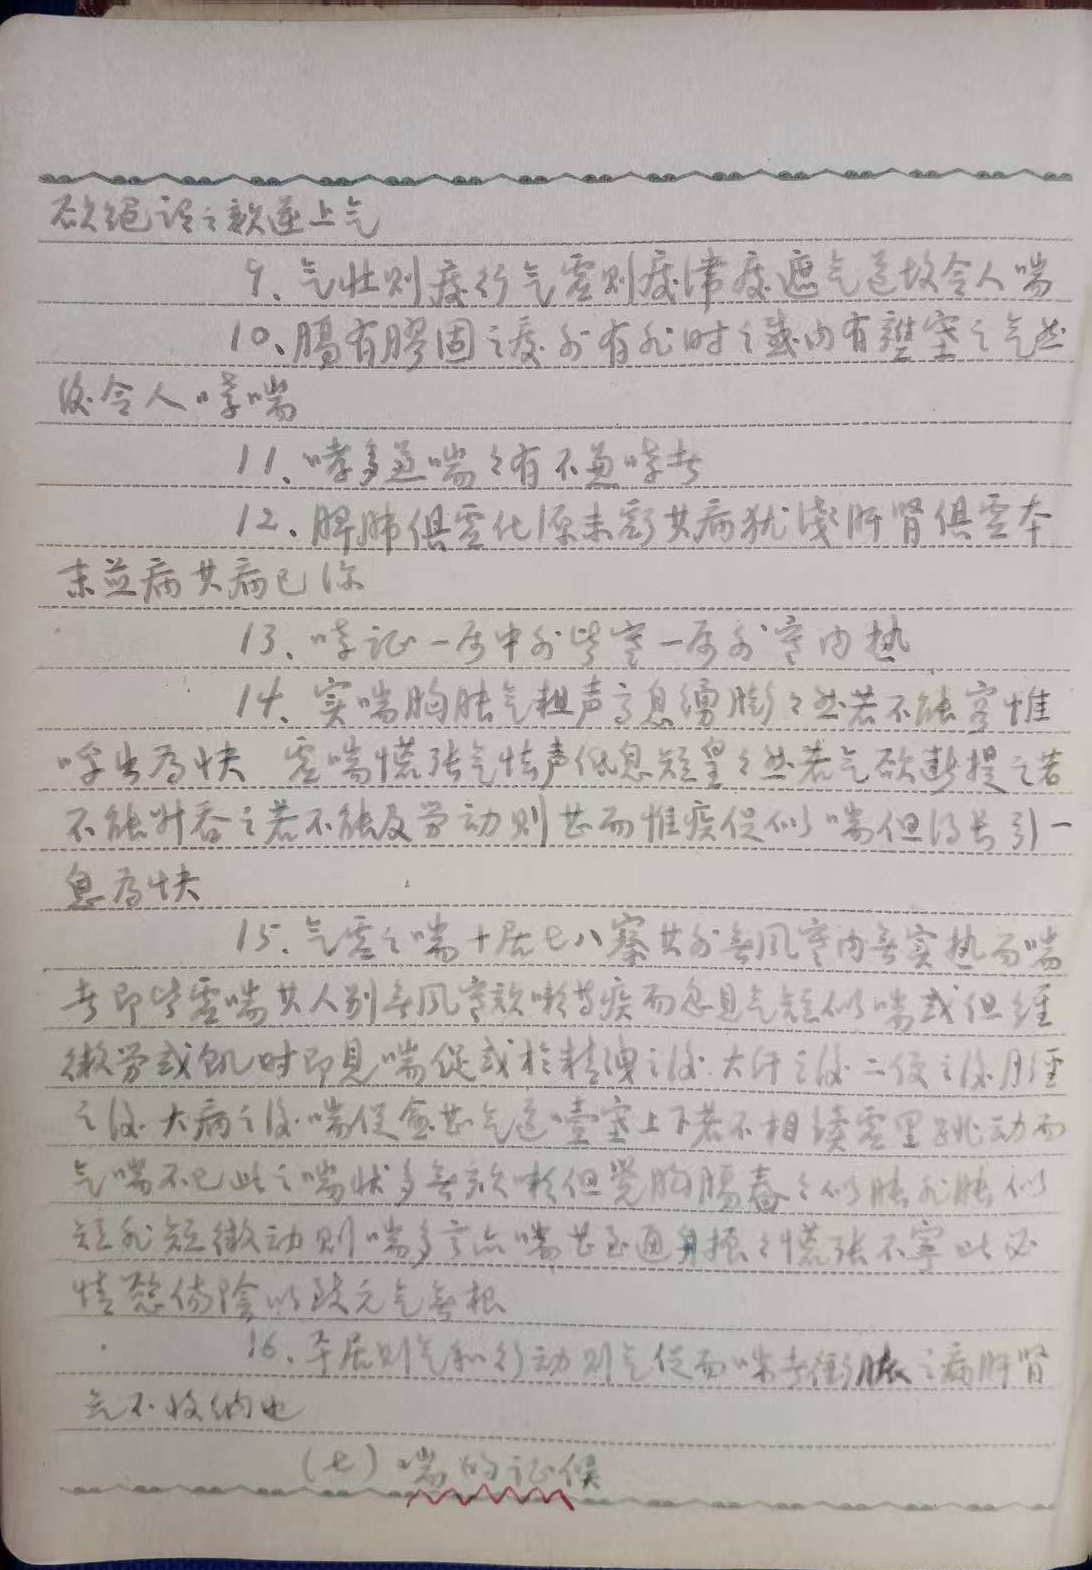 欲绝谓之欬逆上气
9、气壮则痰行气虚则痰滞痰遮气道故令人喘
10、膈有胶固之痰外有非时之感内有壅塞之气然
后令人哮喘
11、哮多兼喘喘有不兼哮者
12、脾肺俱虚化源未亏其病犹浅肝肾俱虚本
末并病其病已深
13、哮证一属中外皆寒一属外寒内热
14、实喘胸胀气粗声高息涌膨々然若不能容惟
呼出为快 虚喘慌张气怯声低息短皇々然若气欲断提之若
不能升吞之若不能及劳动则甚而惟疾促似喘但得长引一
息为快
15、气虚之喘十居七八察其外无风寒内无实热而喘
者即皆虚喘其人别无风寒欬嗽等疾而忽见气短似喘或但经
微劳或饥时即见喘促或于精洩之後、大汗之後、二便之後、月经
之後、大病之後、喘促愈甚气道噎塞上下若不相续虚里跳动而
气喘不已此之喘状多无欬嗽但觉胸膈舂々似胀非胀似
短非短微动则喘多言亦喘甚至通身振々慌张不寧此必
情慾伤陰以致元气无根
16、平居则气和行动则气促而喘者衝脉之病肝肾
气不收纳也
(七)喘的证候